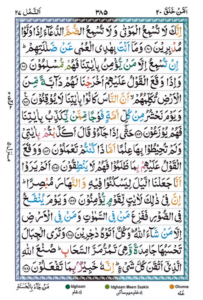 اَمَّنْ خَلَقَ ٢٠ ٣٨٥ اَلنَّمْل ٢٧
اِنَّكَ لَا تُسْمِعُ الْمَوْتٰى وَلَا تُسْمِعُ الصُّمَّ الدُّعَآءَ اِذَا وَلَّوْا
مُدْبِرِيْنَ وَمَآ اَنْتَ بِهٰدِى الْعُمْىِ عَنْ ضَلٰلَتِهِمْ
اِنْ تُسْمِعُ اِلَّا مَنْ يُّؤْمِنُ بِاٰيٰتِنَا فَهُمْ مُّسْلِمُوْنَ
وَاِذَا وَقَعَ الْقَوْلُ عَلَيْهِمْ اَخْرَجْنَا لَهُمْ دَآبَّةً مِّنَ
الْاَرْضِ تُكَلِّمُهُمْ اَنَّ النَّاسَ كَانُوْا بِاٰيٰتِنَا لَا يُوْقِنُوْنَ
وَيَوْمَ نَحْشُرُ مِنْ كُلِّ اُمَّةٍ فَوْجًا مِّمَّنْ يُّكَذِّبُ بِاٰيٰتِنَا
فَهُمْ يُوْزَعُوْنَ حَتّٰٓى اِذَا جَآءُوْ قَالَ اَكَذَّبْتُمْ بِاٰيٰتِىْ
وَلَمْ تُحِيْطُوْا بِهَا عِلْمًا اَمَّاذَا كُنْتُمْ تَعْمَلُوْنَ وَوَقَعَ
الْقَوْلُ عَلَيْهِمْ بِمَا ظَلَمُوْا فَهُمْ لَا يَنْطِقُوْنَ اَلَمْ يَرَوْا
اَنَّا جَعَلْنَا الَّيْلَ لِيَسْكُنُوْا فِيْهِ وَالنَّهَارَ مُبْصِرًا اِنَّ
فِىْ ذٰلِكَ لَاٰيٰتٍ لِّقَوْمٍ يُّؤْمِنُوْنَ وَيَوْمَ يُنْفَخُ
فِى الصُّوْرِ فَفَزِعَ مَنْ فِى السَّمٰوٰتِ وَمَنْ فِى الْاَرْضِ
اِلَّا مَنْ شَآءَ اللّٰهُ وَكُلٌّ اَتَوْهُ دٰخِرِيْنَ وَتَرَى الْجِبَالَ
تَحْسَبُهَا جَامِدَةً وَّهِىَ تَمُرُّ مَرَّ السَّحَابِ صُنْعَ اللّٰهِ
الَّذِىْٓ اَتْقَنَ كُلَّ شَىْءٍ اِنَّهٗ خَبِيْرٌۢ بِمَا تَفْعَلُوْنَ
مَنْ جَآءَ بِالْحَسَنَةِ